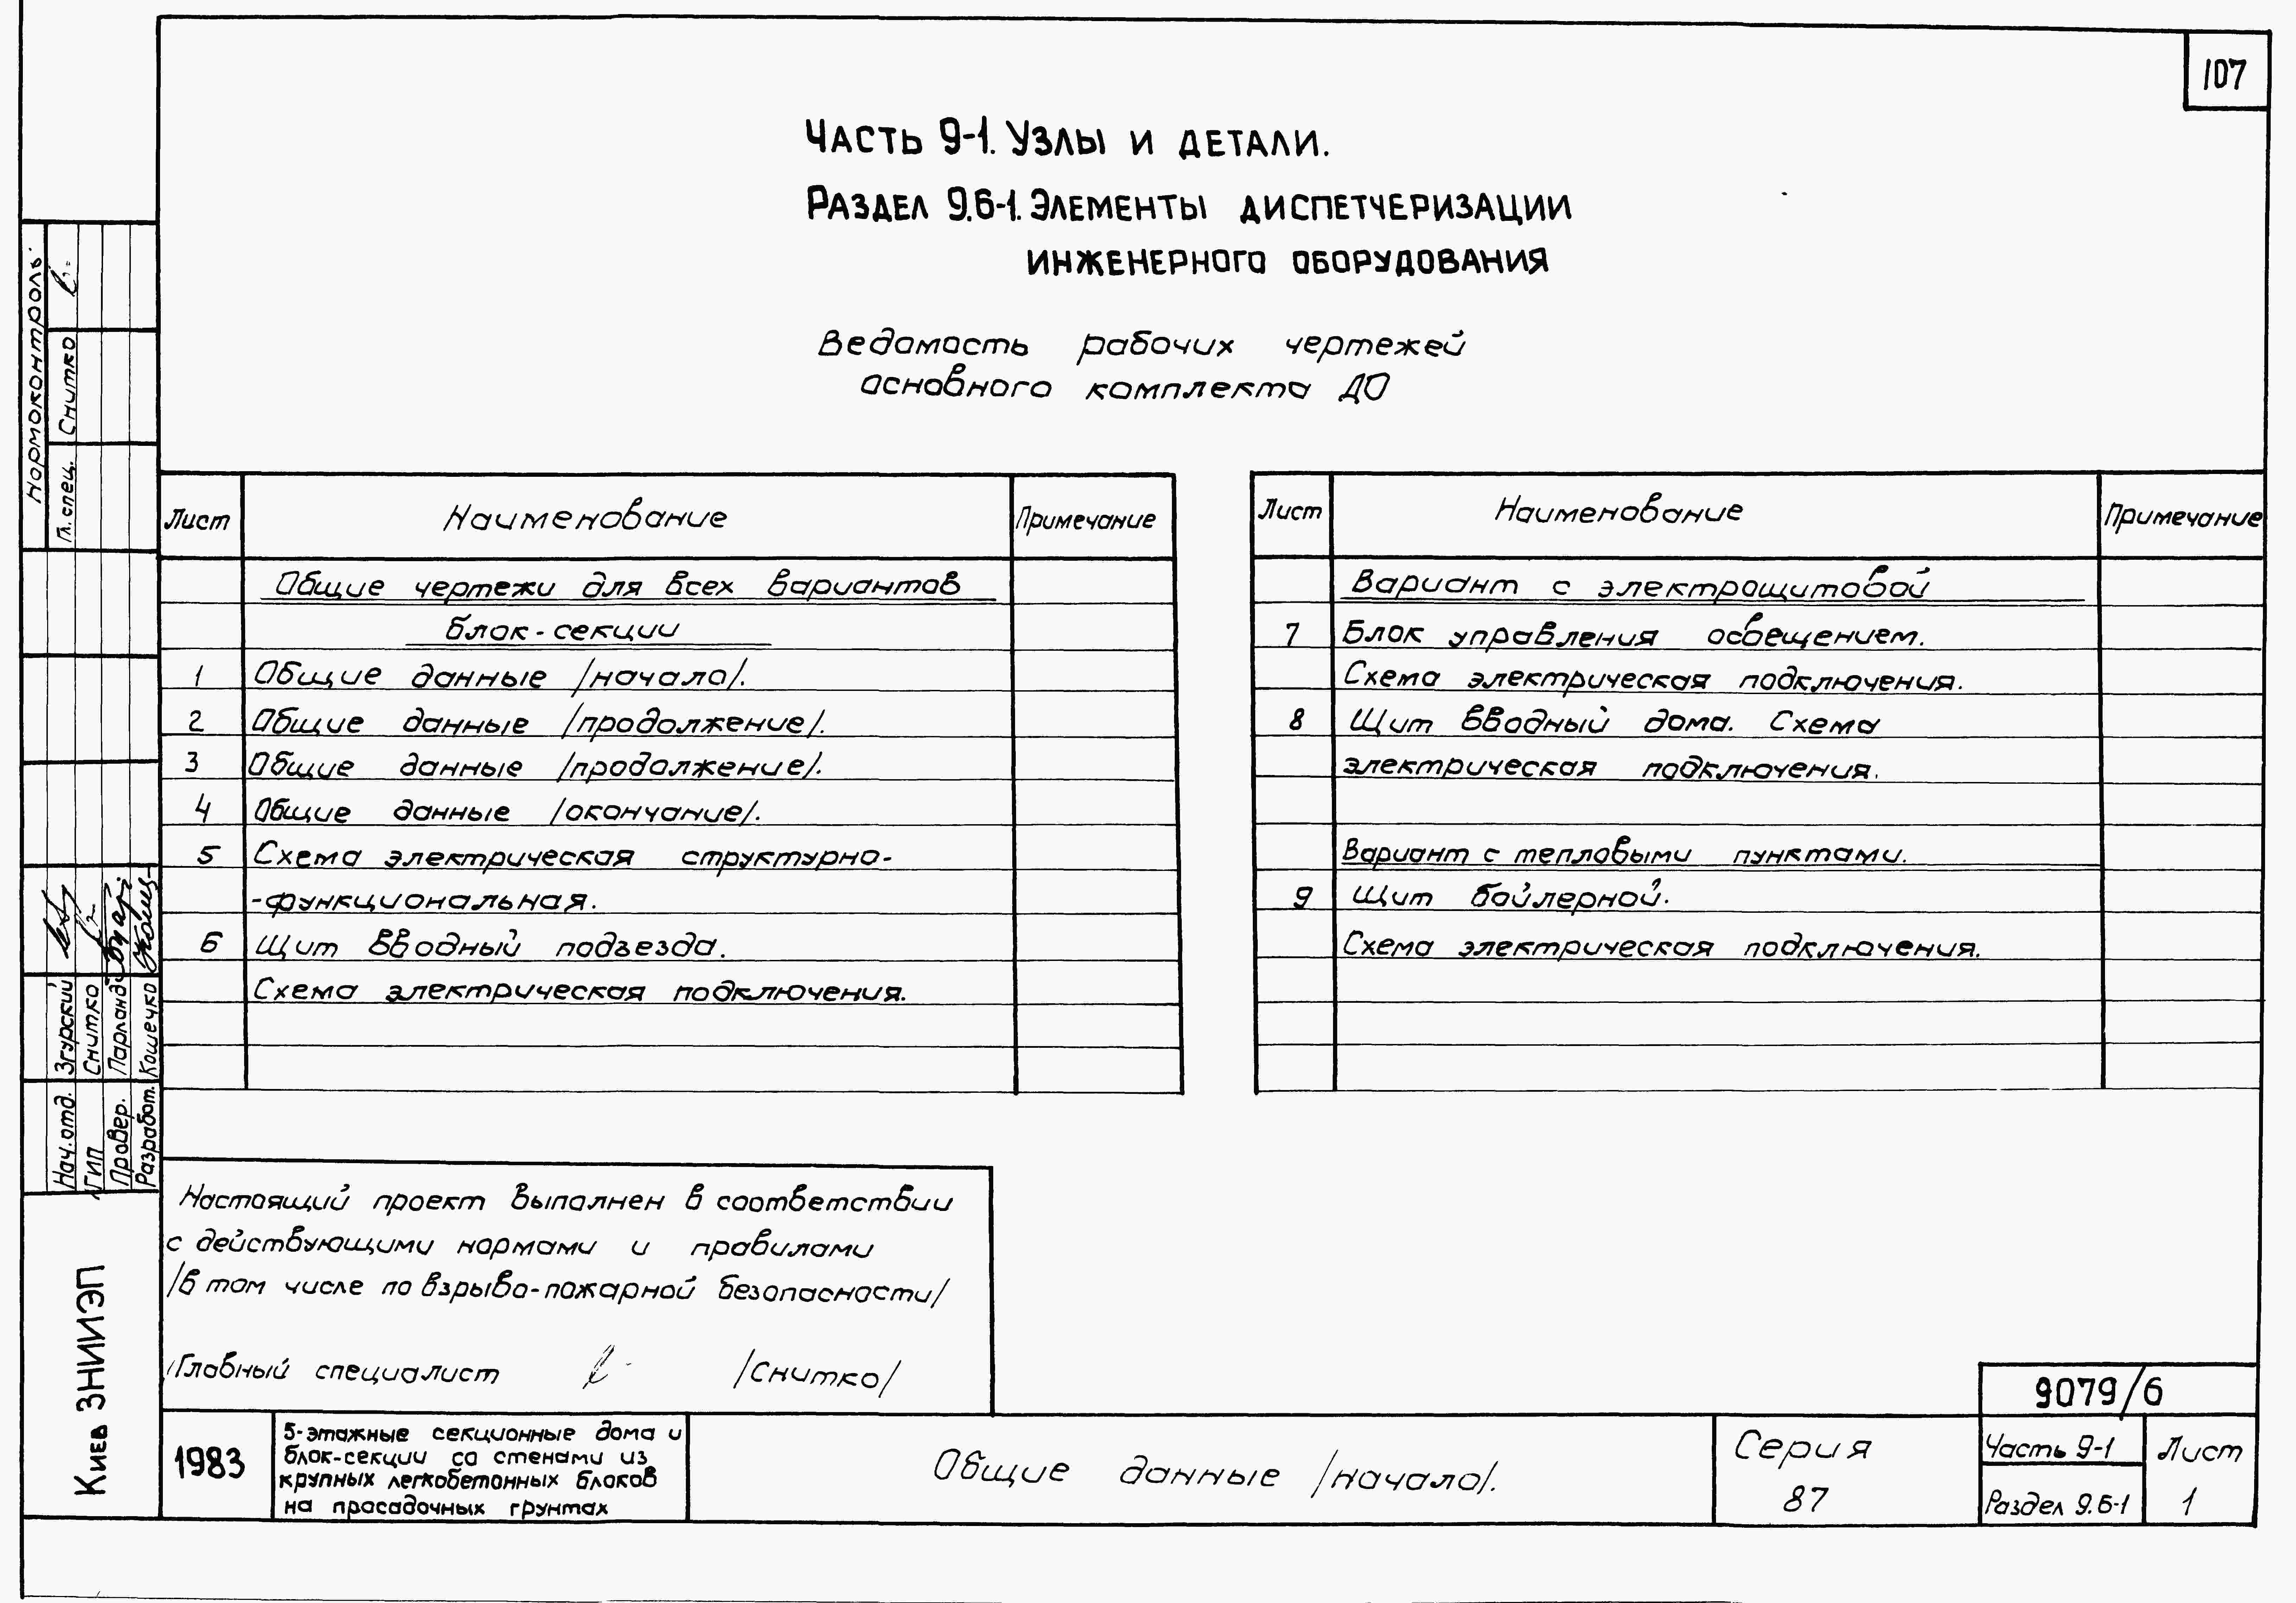 107
Часть 9-1. Узлы и детали.
Раздел 9.6-1. Элементы диспетчеризации
инженерного оборудования
Ведомость рабочих чертежей
основного комплекта ДО
Лист Наименование Примечание
Общие чертежи для всех вариантов
блок-секции
1 Общие данные /начало/.
2 Общие данные /продолжение/.
3 Общие данные /продолжение/.
4 Общие данные /окончание/.
5 Схема электрическая структурно-
-функциональная.
6 Щит вводный подъезда.
Схема электрическая подключения.
Лист Наименование Примечание
Вариант с электрощитовой
7 Блок управления освещением.
Схема электрическая подключения.
8 Щит вводный дома. Схема
электрическая подключения.
Вариант с тепловыми пунктами.
9 Щит бойлерной.
Схема электрическая подключения.
Настоящий проект выполнен в соответствии
с действующими нормами и правилами
/в том числе по взрыво-пожарной безопасности/
Главный специалист /Снитко/
Нормоконтроль
Гл. спец. Снитко
Нач. отд. Згурский
ГИП Снитко
Провер.
Разработ. Кошечко
Киев ЗНИИЭП
1983
5-этажные секционные дома и
блок-секции со стенами из
крупных легкобетонных блоков
на просадочных грунтах
Общие данные /начало/.
Серия
87
9079/6
Часть 9-1
Раздел 9.6-1
Лист
1